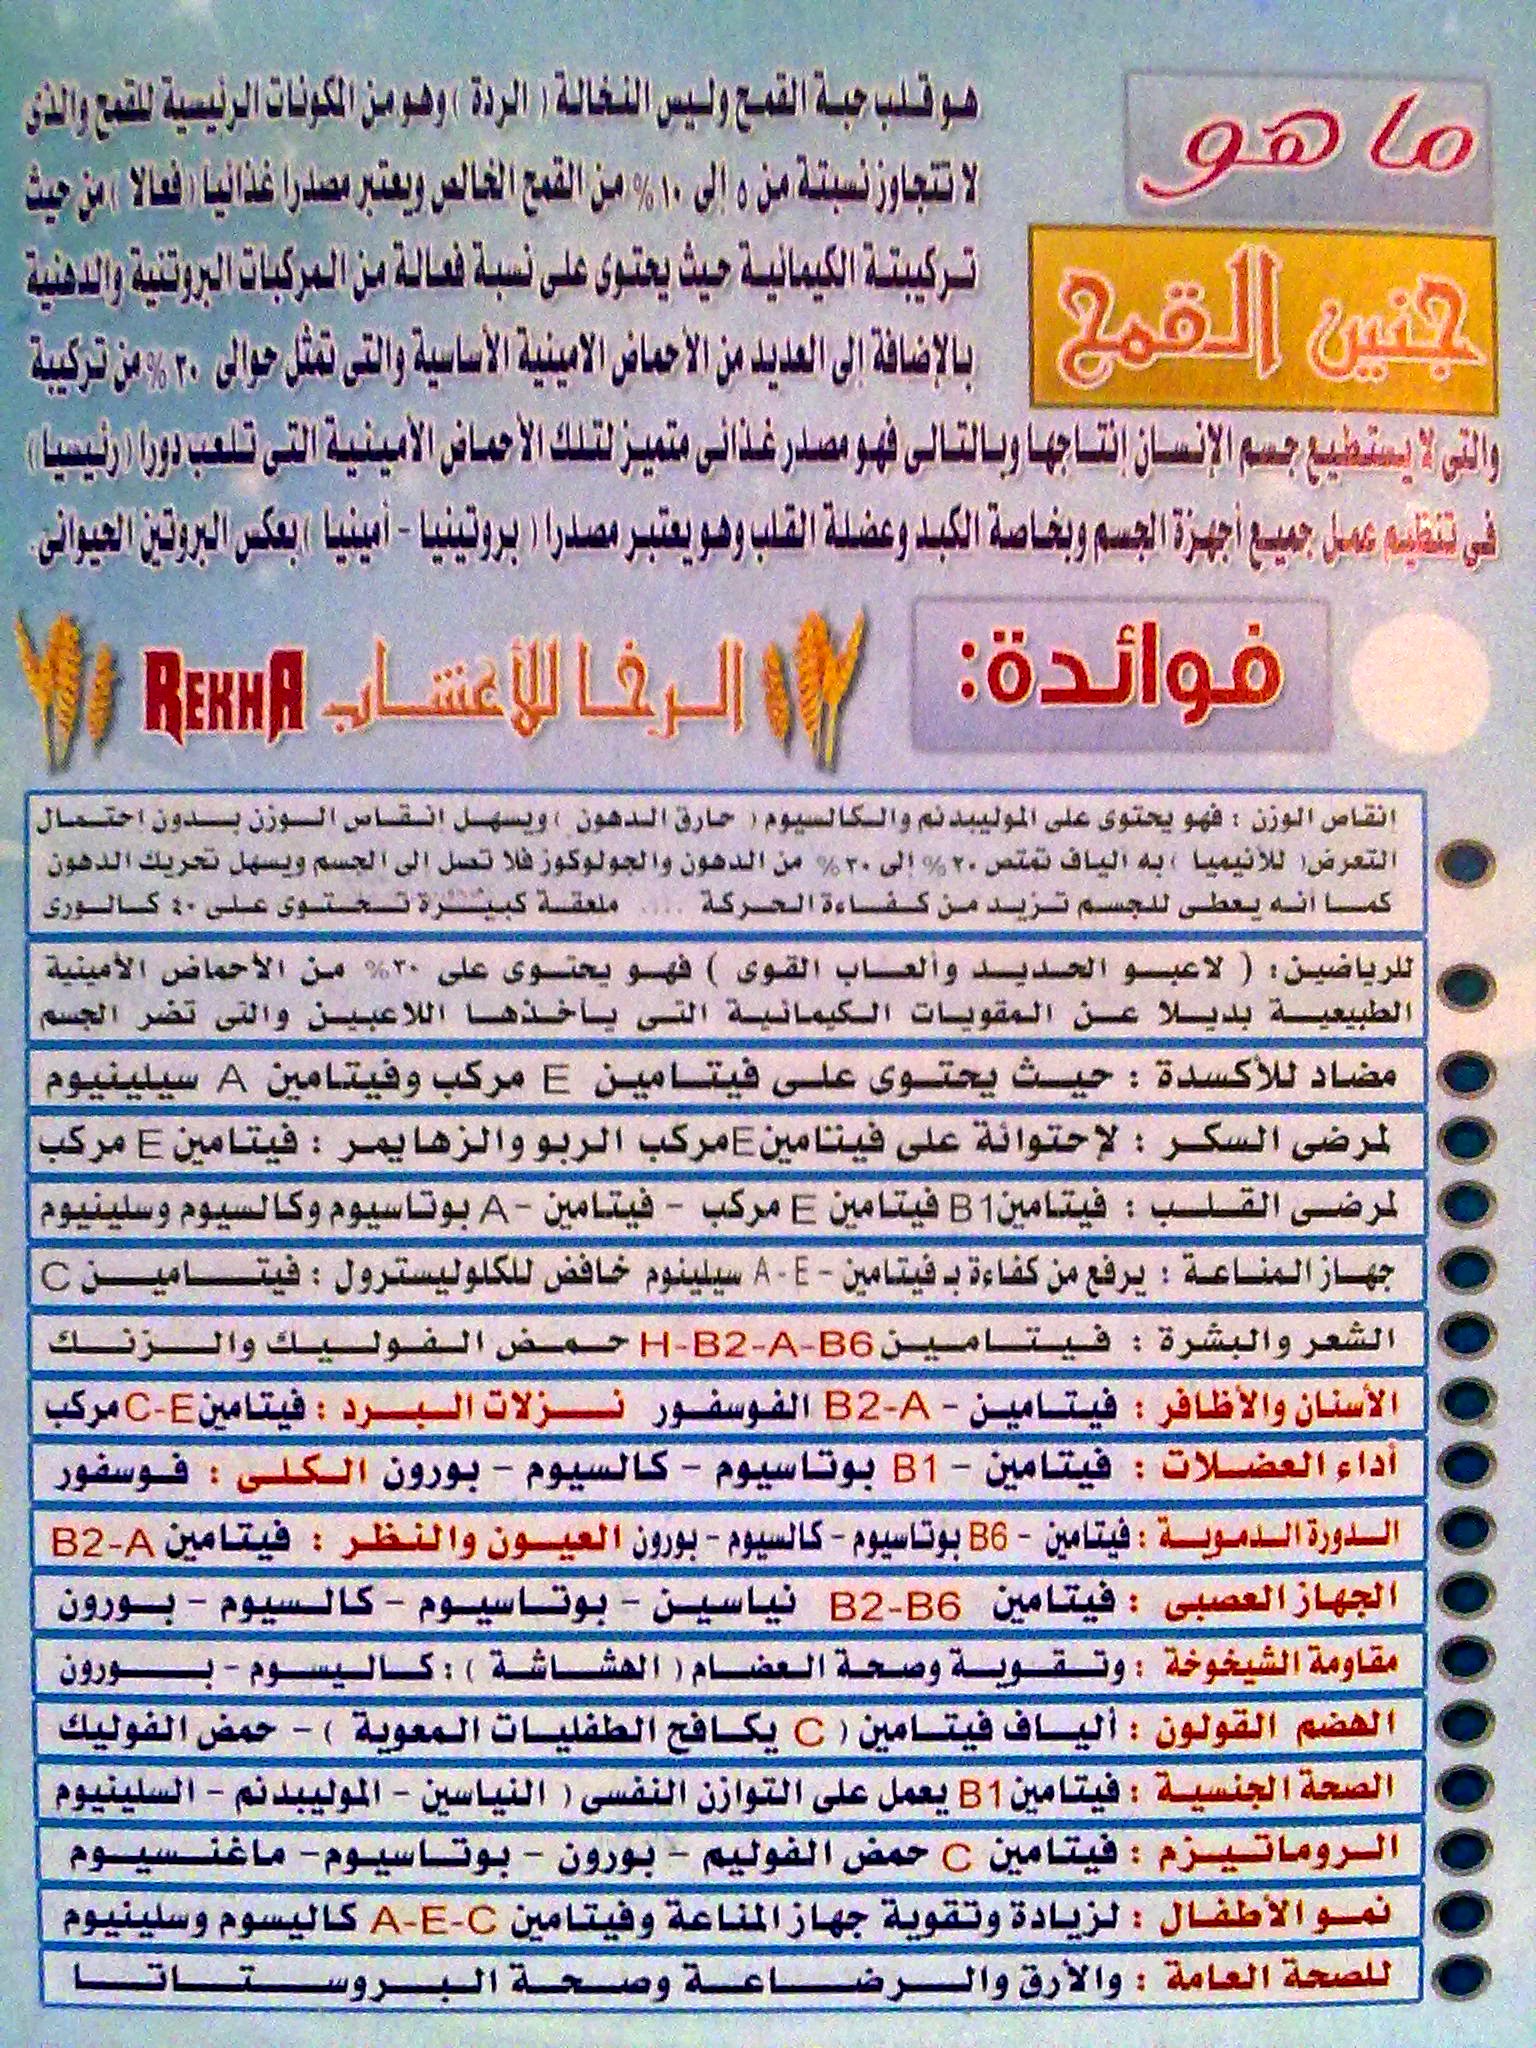 ما هو
جنين القمح
هو قلب حبة القمح وليس النخالة ( الردة ) وهو من المكونات الرئيسية للقمح والذى
لا تتجاوز نسبتة من ٥ إلى ١٠ % من القمح الخالص ويعتبر مصدرا غذائيا ( فعالا ) من حيث
تركيبتة الكيمائية حيث يحتوى على نسبة فعالة من المركبات البروتنية والدهنية
بالإضافة إلى العديد من الأحماض الامينية الأساسية والتى تمثل حوالى ٣٠ % من تركيبة
والتى لا يستطيع جسم الإنسان إنتاجها وبالتالى فهو مصدر غذائى متميز لتلك الأحماض الأمينية التى تلعب دورا ( رئيسيا )
في تنظيم عمل جميع أجهزة الجسم وبخاصة الكبد وعضلة القلب وهو يعتبر مصدرا ( بروتينيا - أمينيا ) بعكس البروتين الحيوانى.
فوائدة:
الرخا للأعشاب REKHA
إنقاص الوزن : فهو يحتوى على الموليبدنم والكالسيوم ( حارق الدهون ) ويسهل إنقاص الوزن بدون إحتمال
التعرض( للأنيميا ) به الياف تمتص ٢٠% إلى ٣٠% من الدهون والجولوكوز فلا تصل إلى الجسم ويسهل تحريك الدهون
كما أنه يعطى للجسم تزيد من كفاءة الحركة .... ملعقة كبيرة تحتوى على ٤٠ كالورى
للرياضين: ( لاعبو الحديد وألعاب القوى ) فهو يحتوى على ٣٠% من الأحماض الأمينية
الطبيعية بديلا عن المقويات الكيمائية التى يأخذها اللاعبين والتى تضر الجسم
مضاد للأكسدة : حيث يحتوى على فيتامين E مركب وفيتامين A سيلينيوم
لمرضى السكر : لإحتوائة على فيتامين E مركب الربو والزهايمر : فيتامين E مركب
لمرضى القلب : فيتامين B1 فيتامين E مركب - فيتامين -A بوتاسيوم وكالسيوم وسلينيوم
جهاز المناعة : يرفع من كفاءة بـ فيتامين - A - E سيلينوم خافض للكلوليسترول : فيتامين C
الشعر والبشرة : فيتامين H-B2-A-B6 حمض الفوليك والزنك
الأسنان والأظافر : فيتامين - B2-A الفوسفور نزلات البرد : فيتامين C-E مركب
أداء العضلات : فيتامين - B1 بوتاسيوم - كالسيوم - بورون الكلى : فوسفور
الدورة الدموية : فيتامين - B6 بوتاسيوم - كالسيوم - بورون العيون والنظر : فيتامين B2-A
الجهاز العصبى : فيتامين B2-B6 نياسين - بوتاسيوم - كالسيوم - بورون
مقاومة الشيخوخة : وتقوية وصحة العضام ( الهشاشة ) : كاليسوم - بورون
الهضم القولون : ألياف فيتامين ( C يكافح الطفليات المعوية ) - حمض الفوليك
الصحة الجنسية : فيتامين B1 يعمل على التوازن النفسى ( النياسين - الموليبدنم - السلينيوم
الروماتيزم : فيتامين C حمض الفوليم - بورون - بوتاسيوم- ماغنسيوم
نمو الأطفال : لزيادة وتقوية جهاز المناعة وفيتامين A-E-C كاليسوم وسلينيوم
للصحة العامة : والأرق والرضاعة وصحة البروستاتا